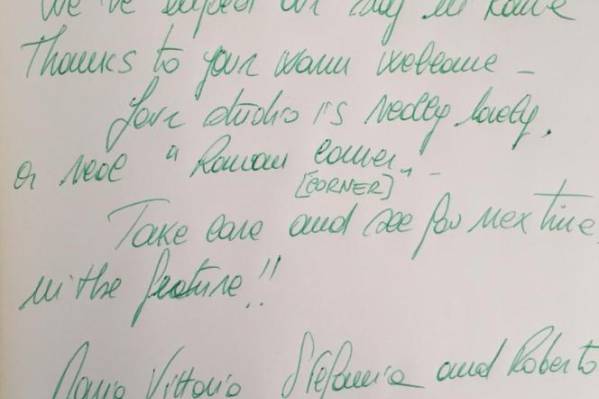 We've enjoyed our stay in Rome
Thanks to your warm welcome -
Your studio is really lovely,
a real "Roman corner" -
[CORNER]
Take care and see you nex time
in the feature!!
Maria Vittoria Stefania and Roberto